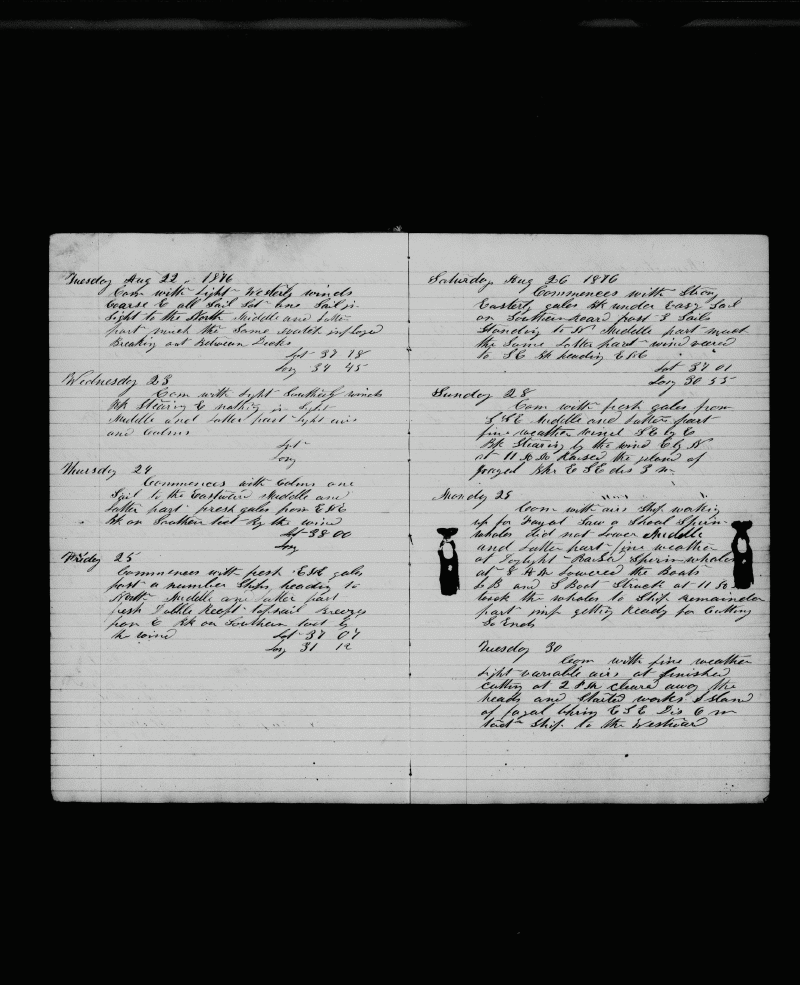 Tuesday Aug 22, 1876
Com with Light Westerly winds
Coarse E all Sail Set one Sail in
Sight to the North Middle and latter
part much the Same watch imployed
Breaking out Between Decks
Lat 37 18
Long 34 45
Wednesday 23
Com with Light Southerly winds
Bk Stearing E nothing in Sight
Middle and Latter part Light airs
and Calms
Lat
Long
Thursday 24
Commences with Calms one
Sail to the Eastward Middle and
latter part fresh gales from ENE
Bk on Southern tact By the wind
Lat 38 00
Long
Friday 25
Commences with fresh ENE gales
part a number Ships heading to
North Middle and latter part
fresh Double Reeft topsail Breezes
from E Bk on Southern tact by
the wind Lat 37 07
Long 31 12
Saturday Aug 26 1876
Commences with Strong
Easterly gales Bk under Easy Sail
on Southern part 3 Sails
Standing to N Middle part much
the Same Latter part wind veered
to SE Bk heading ENE
Lat 37 01
Long 30 55
Sunday 28
Com with fresh gales from
SSE Middle and Latter part
fine weather wind SE by E
Bk Stearing by the wind E by N
at 11 Raised the island of
fayal E SE dis 3 m
Monday 28
Com with airs Ship working
up for Fayal Saw a Shoal Sperm
whales did not Lower Middle
and Latter part fine weather
at Daylight Raised Sperm whales
at 8 AM Lowered the Boats
LB and S Boat Struck at 11 50
took the whales to Ship Remainder
part imp getting Ready for Cutting
So Ends
Tuesday 30
Com with fine weather
Light variable airs at finished
cutting at 2 PM cleared away the
heads and Started works Island
of fayal bring ESE Dis 6 m
tact Ship to the Westward